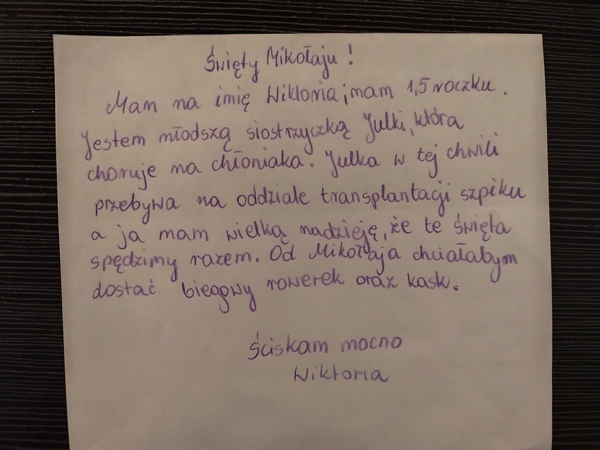 Święty Mikołaju!
Mam na imię Wiktoria, mam 1,5 roczku.
Jestem młodszą siostrzyczką Julki, która
choruje na chłoniaka. Julka w tej chwili
przebywa na oddziale transplantacji szpiku
a ja mam wielką nadzieję, że te święta
spędzimy razem. Od Mikołaja chciałabym
dostać biegowy rowerek oraz kask.
Ściskam mocno
Wiktoria